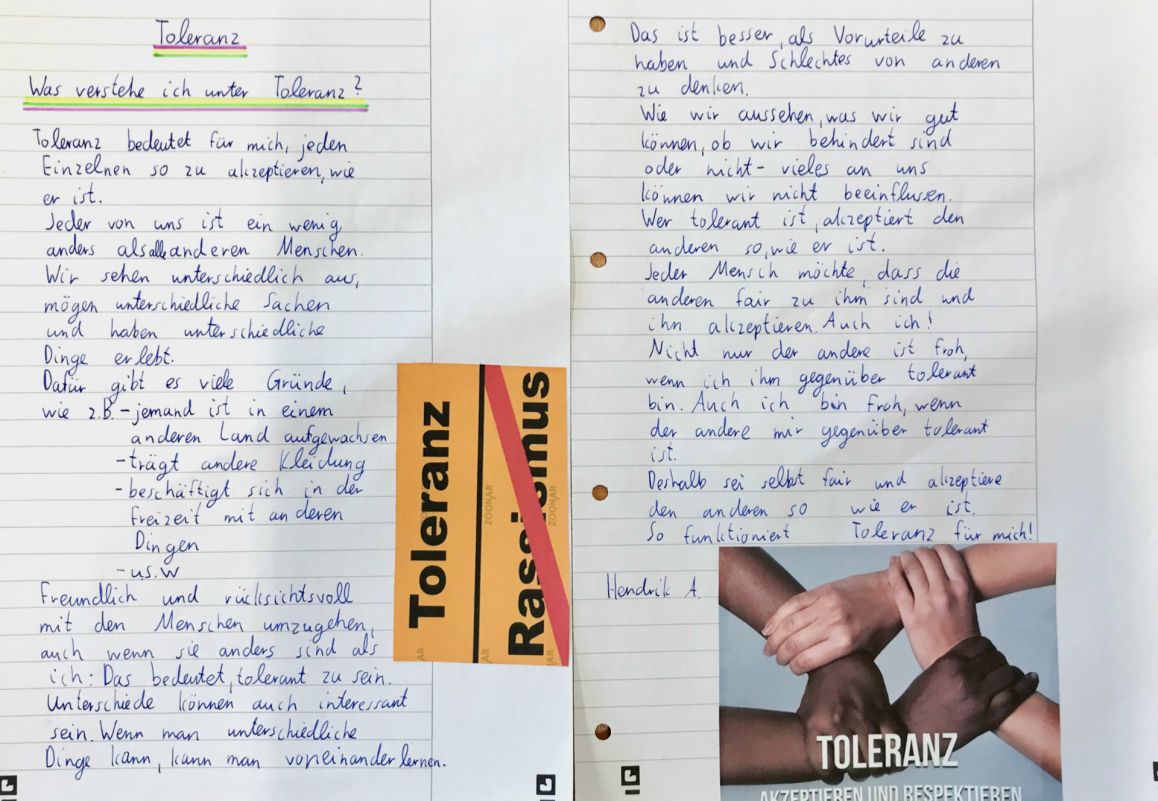 Toleranz
Was verstehe ich unter Toleranz?
Toleranz bedeutet für mich, jeden
Einzelnen so zu akzeptieren, wie
er ist.
Jeder von uns ist ein wenig
anders als alle anderen Menschen.
Wir sehen unterschiedlich aus,
mögen unterschiedliche Sachen
und haben unterschiedliche
Dinge erlebt.
Dafür gibt es viele Gründe,
wie z.B. - jemand ist in einem
anderen Land aufgewachsen
- trägt andere Kleidung
- beschäftigt sich in der
Freizeit mit anderen
Dingen
- u.s.w
Freundlich und rücksichtsvoll
mit den Menschen umzugehen,
auch wenn sie anders sind als
ich: Das bedeutet, tolerant zu sein.
Unterschiede können auch interessant
sein. Wenn man unterschiedliche
Dinge kann, kann man voneinander lernen.
Toleranz
Rassismus
ZOONAR
ZOONAR
Das ist besser, als Vorurteile zu
haben und Schlechtes von anderen
zu denken.
Wie wir aussehen, was wir gut
können, ob wir behindert sind
oder nicht - vieles an uns
können wir nicht beeinflussen.
Wer tolerant ist, akzeptiert den
anderen so, wie er ist.
Jeder Mensch möchte, dass die
anderen fair zu ihm sind und
ihn akzeptieren. Auch ich!
Nicht nur der andere ist froh,
wenn ich ihm gegenüber tolerant
bin. Auch ich bin froh, wenn
der andere mir gegenüber tolerant
ist.
Deshalb sei selbst fair und akzeptiere
den anderen so wie er ist.
So funktioniert Toleranz für mich!
Hendrik A.
TOLERANZ
AKZEPTIEREN UND RESPEKTIEREN